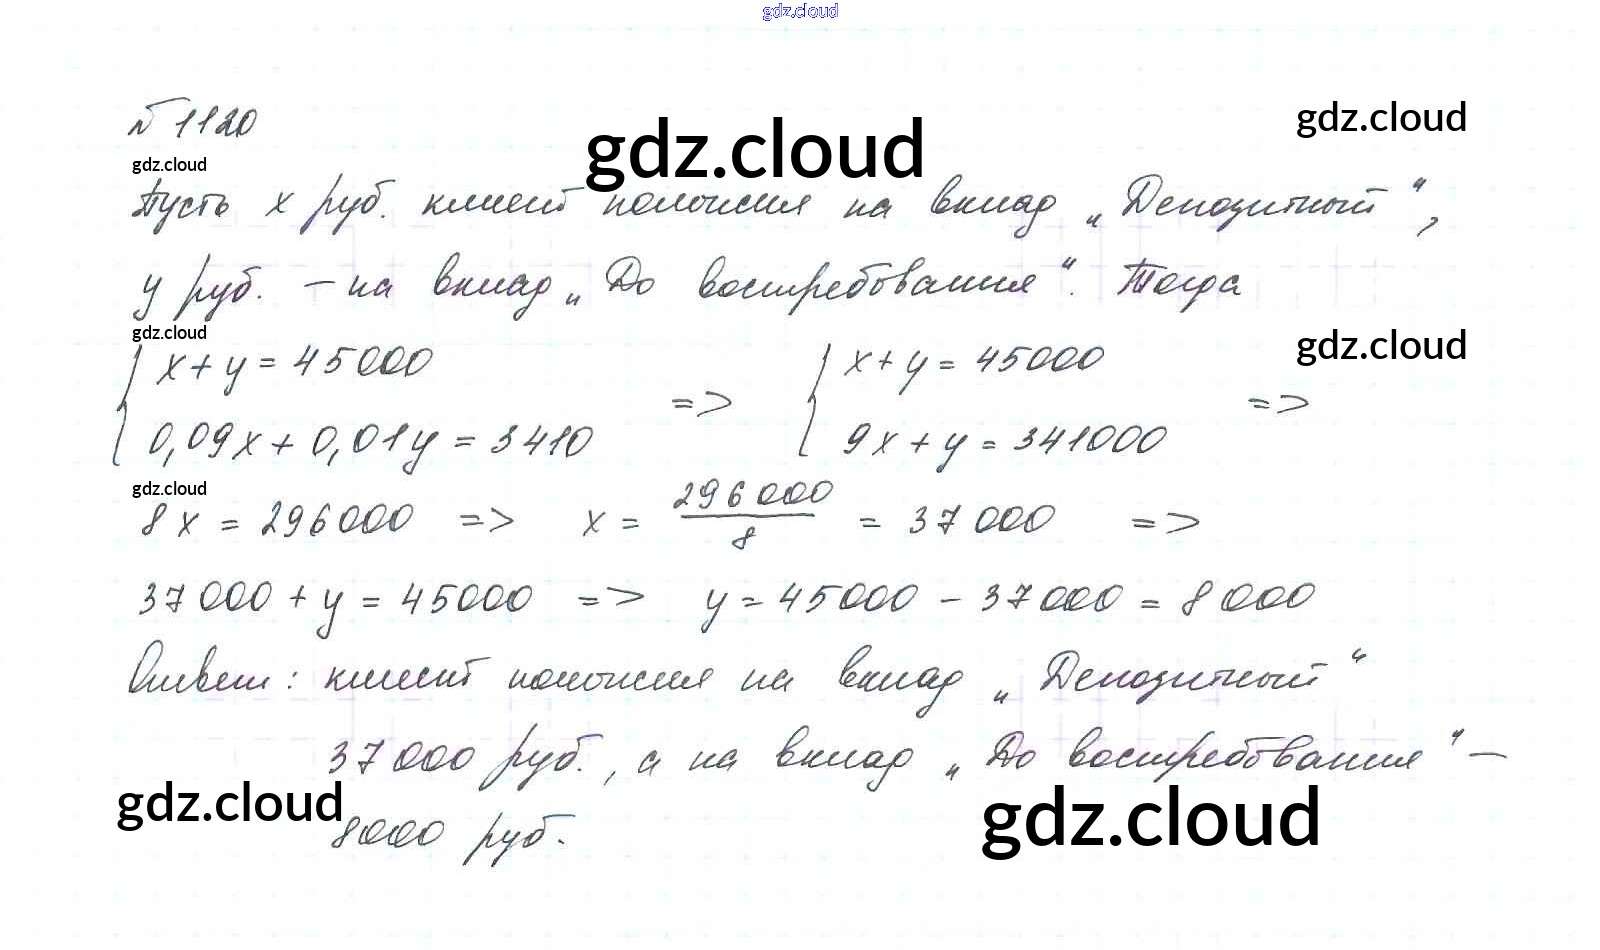 gdz.cloud
№ 1120
gdz.cloud
gdz.cloud
gdz.cloud
Пусть x руб. клиент положил на вклад „Депозитный“,
y руб. – на вклад „До востребования“. Тогда
gdz.cloud
gdz.cloud
{ x + y = 45000 => { x + y = 45000 =>
0,09x + 0,01y = 3410 9x + y = 341000
gdz.cloud
8x = 296000 => x = 296000/8 = 37000 =>
37000 + y = 45000 => y = 45000 – 37000 = 8000
Ответ: клиент положил на вклад „Депозитный“
37000 руб., а на вклад „До востребования“ –
gdz.cloud
gdz.cloud
8000 руб.